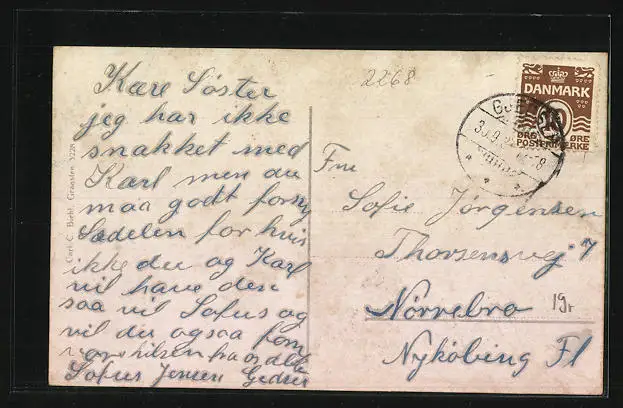 Kære Søster
jeg har ikke
snakket med
Karl men du
maa godt forny
Sædelen for hvis
ikke du og Karl
vil have den
saa vil Sofus og
vil du ogsaa
hilsen fra os alle
Sofus Jensen Gedser
Carl C. Biehl, Graasten 3228
2268
DANMARK
10
ØRE ØRE
POSTFRIMÆRKE
Fru
Sofie Jørgensen
Thorsensvej 7
Nørrebro
19r
Nykøbing Fl